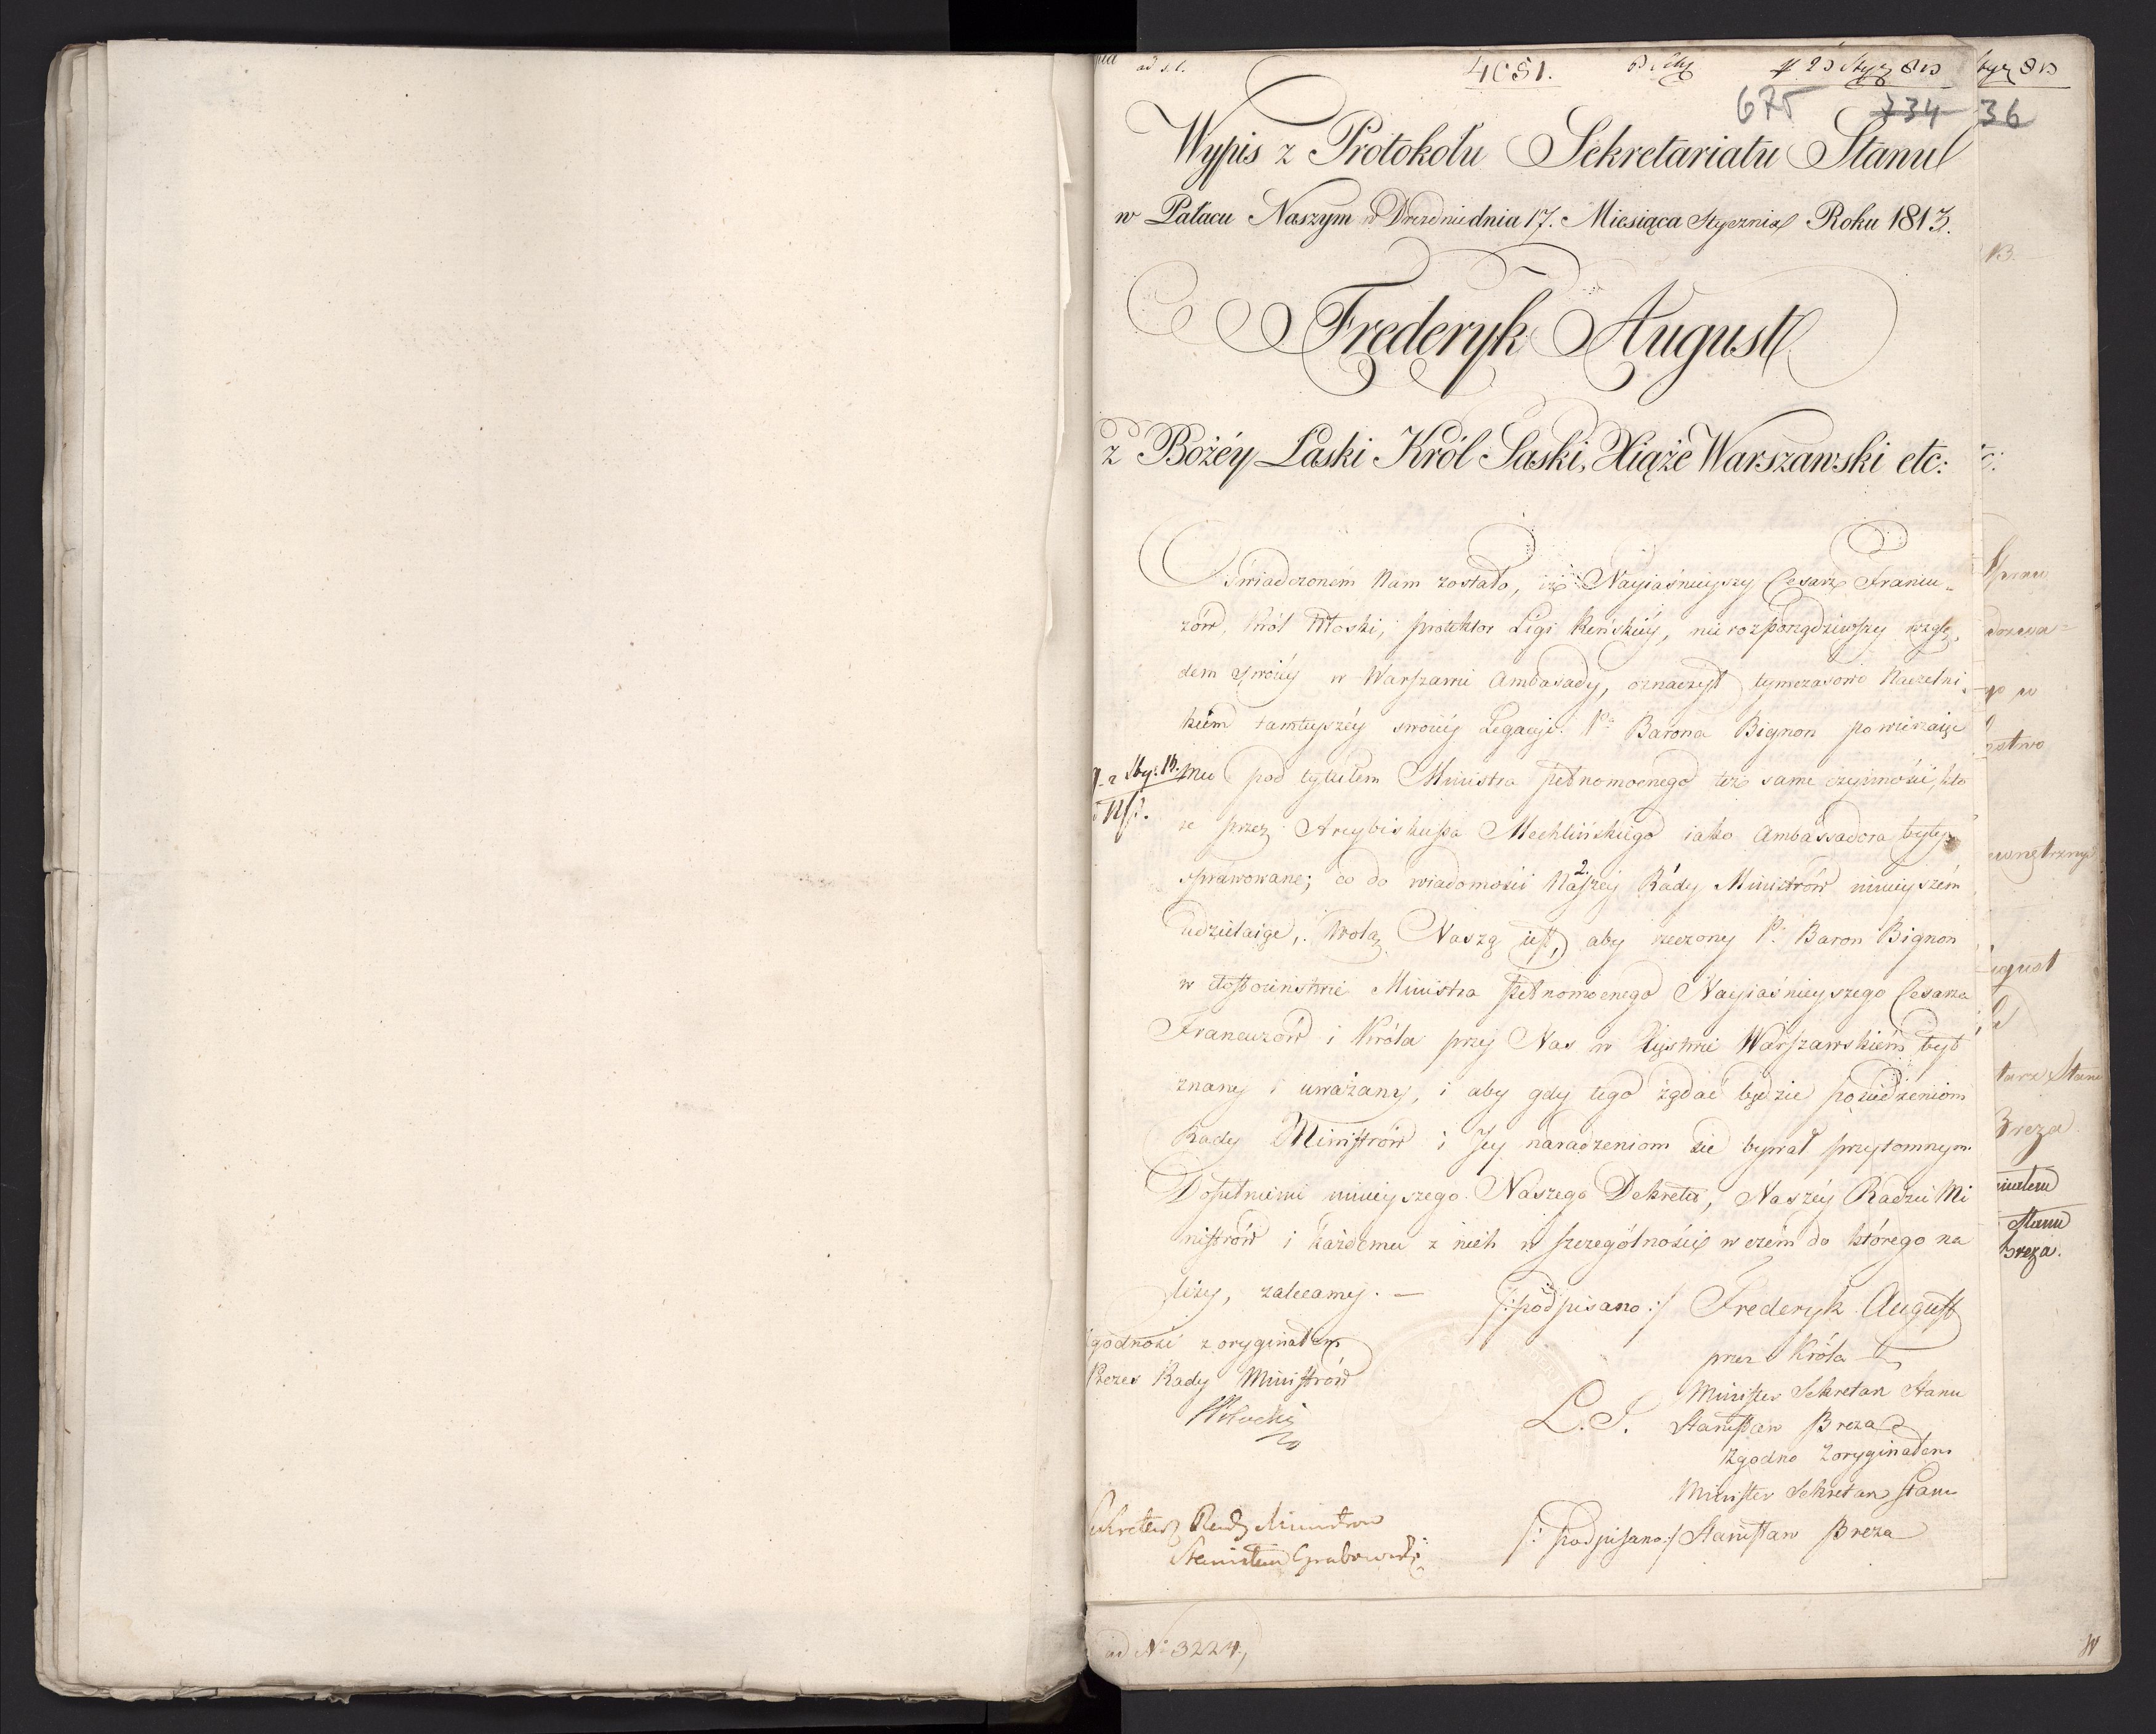 ad s. l.
4051.
675
734
36
Wypis z Protokołu Sekretariatu Stanu
w Pałacu Naszym w Dreznie dnia 17. Miesiąca Stycznia Roku 1813.
Frederyk August
z Bożéy Łaski Król Saski, Xiąże Warszawski etc:
Oświadczoném Nam zostało, iż Nayiaśnieyszy Cesarz Francu-
zów, Król Włoski, protektor Ligi Reńskiéy, nie rozporządziwszy wzglę-
dem swoiéy w Warszawie Ambasady, oznaczył tymczasowo Naczelni-
kiem tamteyszéy swoiéy Legacyi P. Barona Bignon powierzaiąc
mu pod tytułem Ministra pełnomocnego też same czynności, któ
re przez Arcybiskupa Mechlińskiego iako Ambassadora były
sprawowane; co do wiadomości Naszéy Rády Ministrów ninieyszém
udzielaiąc, Wolą Naszą iest, aby rzeczony P. Baron Bignon
w dostoieństwie Ministra pełnomocnego Nayiaśnieyszego Cesarza
Francuzów i Króla przy Nas w Xięstwie Warszawskiém był
znany i uważany, i aby gdy tego żądać będzie posiedzeniom
Rady Ministrów i Jey naradzeniom sie bywał przytomnym.
Dopełnienie ninieyszego Naszego Dekretu, Naszéy Radzie Mi
nistrów i każdemu z nich w szczególności w czém do którego na
leży, zalecamy. —
/:podpisano:/ Frederyk August
przez Króla
Minister Sekretarz Stanu
L. S. Stanisław Breza
Zgodno z oryginałem
Minister Sekretarz Stanu
/: podpisano:/ Stanisław Breza
zgodność z oryginałem
Prezes Rady Ministrów
Potocki
Sekretarz Rady Ministrów
Stanisław Grabowski
ad N. 3224,